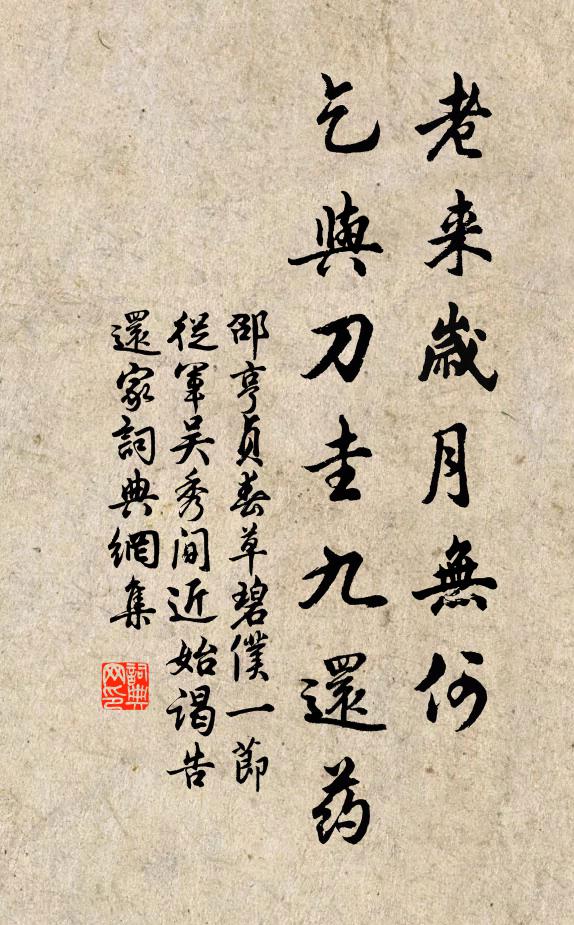 老来歲月無何
乞與刀圭九還药
邵亨貞春草碧僕一節
從軍吴秀間近始谒告
還家詞典網集
詞典网印